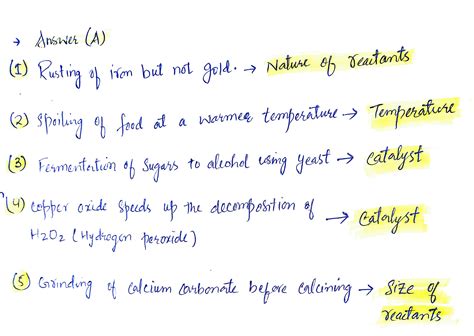 → Answer (A)
(1) Rusting of iron but not gold. → Nature of reactants
(2) Spoiling of food at a warmer temperature → Temperature
(3) Fermentation of sugars to alcohol using yeast → catalyst
(4) copper oxide speeds up the decomposition of → catalyst
H2O2 (Hydrogen peroxide)
(5) Grinding of calcium carbonate before calcining → Size of
reactants